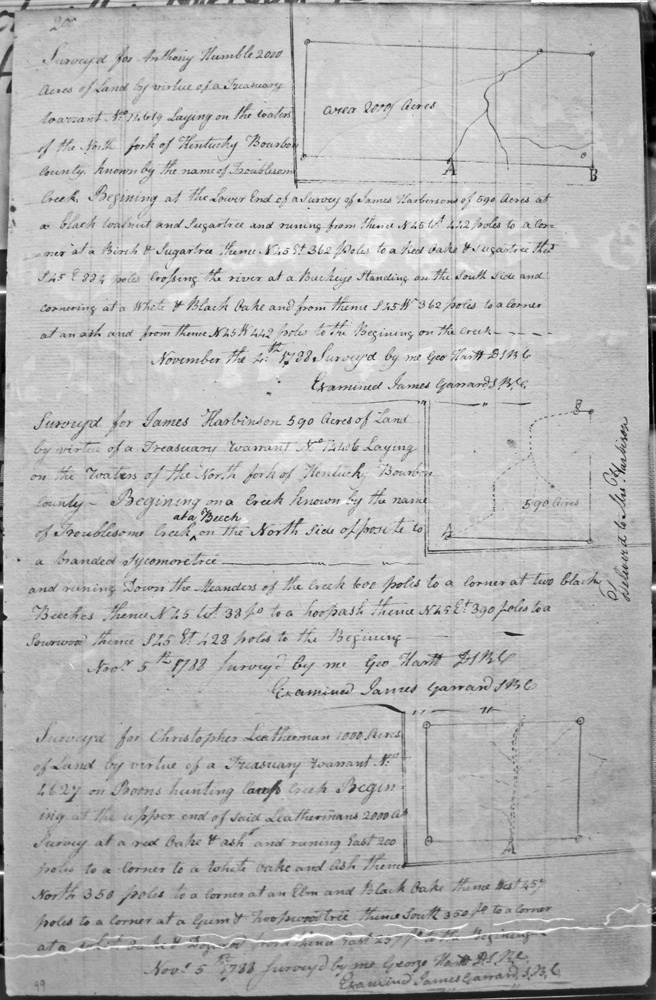 200
Surveyd for Anthony Humble 2000
Acres of Land by virtue of a Treasuary
warrant No 11419 Laying on the waters
of the North fork of Kentucky Bourbon
County known by the name of Troublesom
Creek Begining at the Lower End of a Survey of James Harbinsons of 590 Acres at
a black walnut and Sugartree and runing from thence N45 Wt 442 poles to a Cor=
=ner at a Birch & Sugartree thence N45 Et 362 Poles to a Red Oake & Sugartree the
S45 E 334 poles Crossing the river at a Buckeye Standing on the South Side and
cornering at a White & Black Oake and from thence S45 W 362 poles to a Corner
at an ash and from thence N45 W 442 poles to the Begining on the Creek
November the 4th 1788 Surveyd by me Geo Hartt D.S.B.C
Examined James Garrard S.B.C.
area 2000 Acres
A
B
Surveyd for James Harbinson 590 Acres of Land
by virtue of a Treasuary warrant No 12406 Laying
on the Waters of the North fork of Kentuck Bourbon
County Begining on a Creek known by the name
at a Beech
of Troublesome Creek on the North Side opposite to
a branded Sycomoretree
and runing Down the Meanders of the Creek 600 poles to a Corner at two black
Beeches thence N45 Wt 33 po to a hoopash thence N45 Et 390 poles to a
Sourwood thence S45 Et 428 poles to the Begining
Novr 5th 1788 Surveyd by me Geo Hartt D S B C
Examined James Garrard S.B.C
B
590 Acres
A
Deliverd to Mr Harbison
Surveyd for Christopher Leatherman 1000 Acres
of Land by virtue of a Treasuary Warrant No
4627 on Boons hunting Camp Creek Begin-
ing at the upper end of Said Leathermans 2000 As
Survey at a red Oake & ash and runing East 200
poles to a Corner to a White Oake and Ash thence
North 350 poles to a Corner at an Elm and Black Oake thence West 457
poles to a Corner at a Gum & hoopwoodtree thence South 350 po to a Corner
at a White Oake & from thence East 257 po to the Begining
Novr 5th 1788 Surveyd by me George Hartt D S B C
Examined James Garrard S.B.C
99